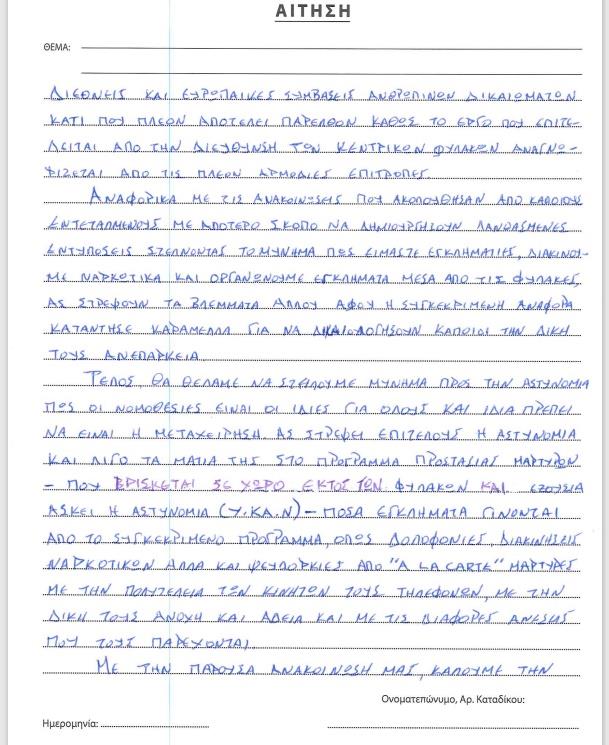 ΑΙΤΗΣΗ
ΘΕΜΑ:
ΔΙΕΘΝΕΙΣ ΚΑΙ ΕΥΡΩΠΑΙΚΕΣ ΣΥΜΒΑΣΕΙΣ ΑΝΘΡΩΠΙΝΩΝ ΔΙΚΑΙΩΜΑΤΩΝ
ΚΑΤΙ ΠΟΥ ΠΛΕΟΝ ΑΠΟΤΕΛΕΙ ΠΑΡΕΛΘΟΝ ΚΑΘΩΣ ΤΟ ΕΡΓΟ ΠΟΥ ΕΠΙΤΕ-
ΛΕΙΤΑΙ ΑΠΟ ΤΗΝ ΔΙΕΥΘΥΝΣΗ ΤΩΝ ΚΕΝΤΡΙΚΩΝ ΦΥΛΑΚΩΝ ΑΝΑΓΝΩ-
ΡΙΖΕΤΑΙ ΑΠΟ ΤΙΣ ΠΛΕΟΝ ΑΡΜΟΔΙΕΣ ΕΠΙΤΡΟΠΕΣ.
ΑΝΑΦΟΡΙΚΑ ΜΕ ΤΙΣ ΑΝΑΚΟΙΝΩΣΕΙΣ ΠΟΥ ΑΚΟΛΟΥΘΗΣΑΝ ΑΠΟ ΚΑΠΟΙΟΥΣ
ΕΝΤΕΤΑΛΜΕΝΟΥΣ ΜΕ ΑΠΩΤΕΡΟ ΣΚΟΠΟ ΝΑ ΔΗΜΙΟΥΡΓΗΣΟΥΝ ΛΑΝΘΑΣΜΕΝΕΣ
ΕΝΤΥΠΩΣΕΙΣ ΣΤΕΛΝΟΝΤΑΣ ΤΟ ΜΥΝΗΜΑ ΠΩΣ ΕΙΜΑΣΤΕ ΕΓΚΛΗΜΑΤΙΕΣ, ΔΙΑΚΙΝΟΥ-
ΜΕ ΝΑΡΚΩΤΙΚΑ ΚΑΙ ΟΡΓΑΝΩΝΟΥΜΕ ΕΓΚΛΗΜΑΤΑ ΜΕΣΑ ΑΠΟ ΤΙΣ ΦΥΛΑΚΕΣ,
ΑΣ ΣΤΡΕΨΟΥΝ ΤΑ ΒΛΕΜΜΑΤΑ ΑΛΛΟΥ ΑΦΟΥ Η ΣΥΓΚΕΚΡΙΜΕΝΗ ΑΝΑΦΟΡΑ
ΚΑΤΑΝΤΗΣΕ ΚΑΡΑΜΕΛΛΑ ΓΙΑ ΝΑ ΔΙΚΑΙΟΛΟΓΗΣΟΥΝ ΚΑΠΟΙΟΙ ΤΗΝ ΔΙΚΗ
ΤΟΥΣ ΑΝΕΠΑΡΚΕΙΑ.
ΤΕΛΟΣ, ΘΑ ΘΕΛΑΜΕ ΝΑ ΣΤΕΙΛΟΥΜΕ ΜΥΝΗΜΑ ΠΡΟΣ ΤΗΝ ΑΣΤΥΝΟΜΙΑ
ΠΩΣ ΟΙ ΝΟΜΟΘΕΣΙΕΣ ΕΙΝΑΙ ΟΙ ΙΔΙΕΣ ΓΙΑ ΟΛΟΥΣ ΚΑΙ ΙΔΙΑ ΠΡΕΠΕΙ
ΝΑ ΕΙΝΑΙ Η ΜΕΤΑΧΕΙΡΗΣΗ. ΑΣ ΣΤΡΕΨΕΙ ΕΠΙΤΕΛΟΥΣ Η ΑΣΤΥΝΟΜΙΑ
ΚΑΙ ΛΙΓΟ ΤΑ ΜΑΤΙΑ ΤΗΣ ΣΤΟ ΠΡΟΓΡΑΜΜΑ ΠΡΟΣΤΑΣΙΑΣ ΜΑΡΤΥΡΩΝ
- ΠΟΥ ΒΡΙΣΚΕΤΑΙ ΣΕ ΧΩΡΟ ΕΚΤΟΣ ΤΩΝ ΦΥΛΑΚΩΝ ΚΑΙ ΕΞΟΥΣΙΑ
ΑΣΚΕΙ Η ΑΣΤΥΝΟΜΙΑ (Υ.ΚΑ.Ν) - ΠΟΣΑ ΕΓΚΛΗΜΑΤΑ ΓΙΝΟΝΤΑΙ
ΑΠΟ ΤΟ ΣΥΓΚΕΚΡΙΜΕΝΟ ΠΡΟΓΡΑΜΜΑ, ΟΠΩΣ ΔΟΛΟΦΟΝΙΕΣ, ΔΙΑΚΙΝΗΣΕΙΣ
ΝΑΡΚΩΤΙΚΩΝ ΑΛΛΑ ΚΑΙ ΨΕΥΔΟΡΚΙΕΣ ΑΠΟ "A LA CARTE" ΜΑΡΤΥΡΕΣ
ΜΕ ΤΗΝ ΠΟΛΥΤΕΛΕΙΑ ΤΩΝ ΚΙΝΗΤΩΝ ΤΟΥΣ ΤΗΛΕΦΩΝΩΝ, ΜΕ ΤΗΝ
ΔΙΚΗ ΤΟΥΣ ΑΝΟΧΗ ΚΑΙ ΑΔΕΙΑ ΚΑΙ ΜΕ ΤΙΣ ΔΙΑΦΟΡΕΣ ΑΝΕΣΕΙΣ
ΠΟΥ ΤΟΥΣ ΠΑΡΕΧΟΝΤΑΙ.
ΜΕ ΤΗΝ ΠΑΡΟΥΣΑ ΑΝΑΚΟΙΝΩΣΗ ΜΑΣ, ΚΑΛΟΥΜΕ ΤΗΝ
Ονοματεπώνυμο, Αρ. Καταδίκου:
Ημερομηνία: